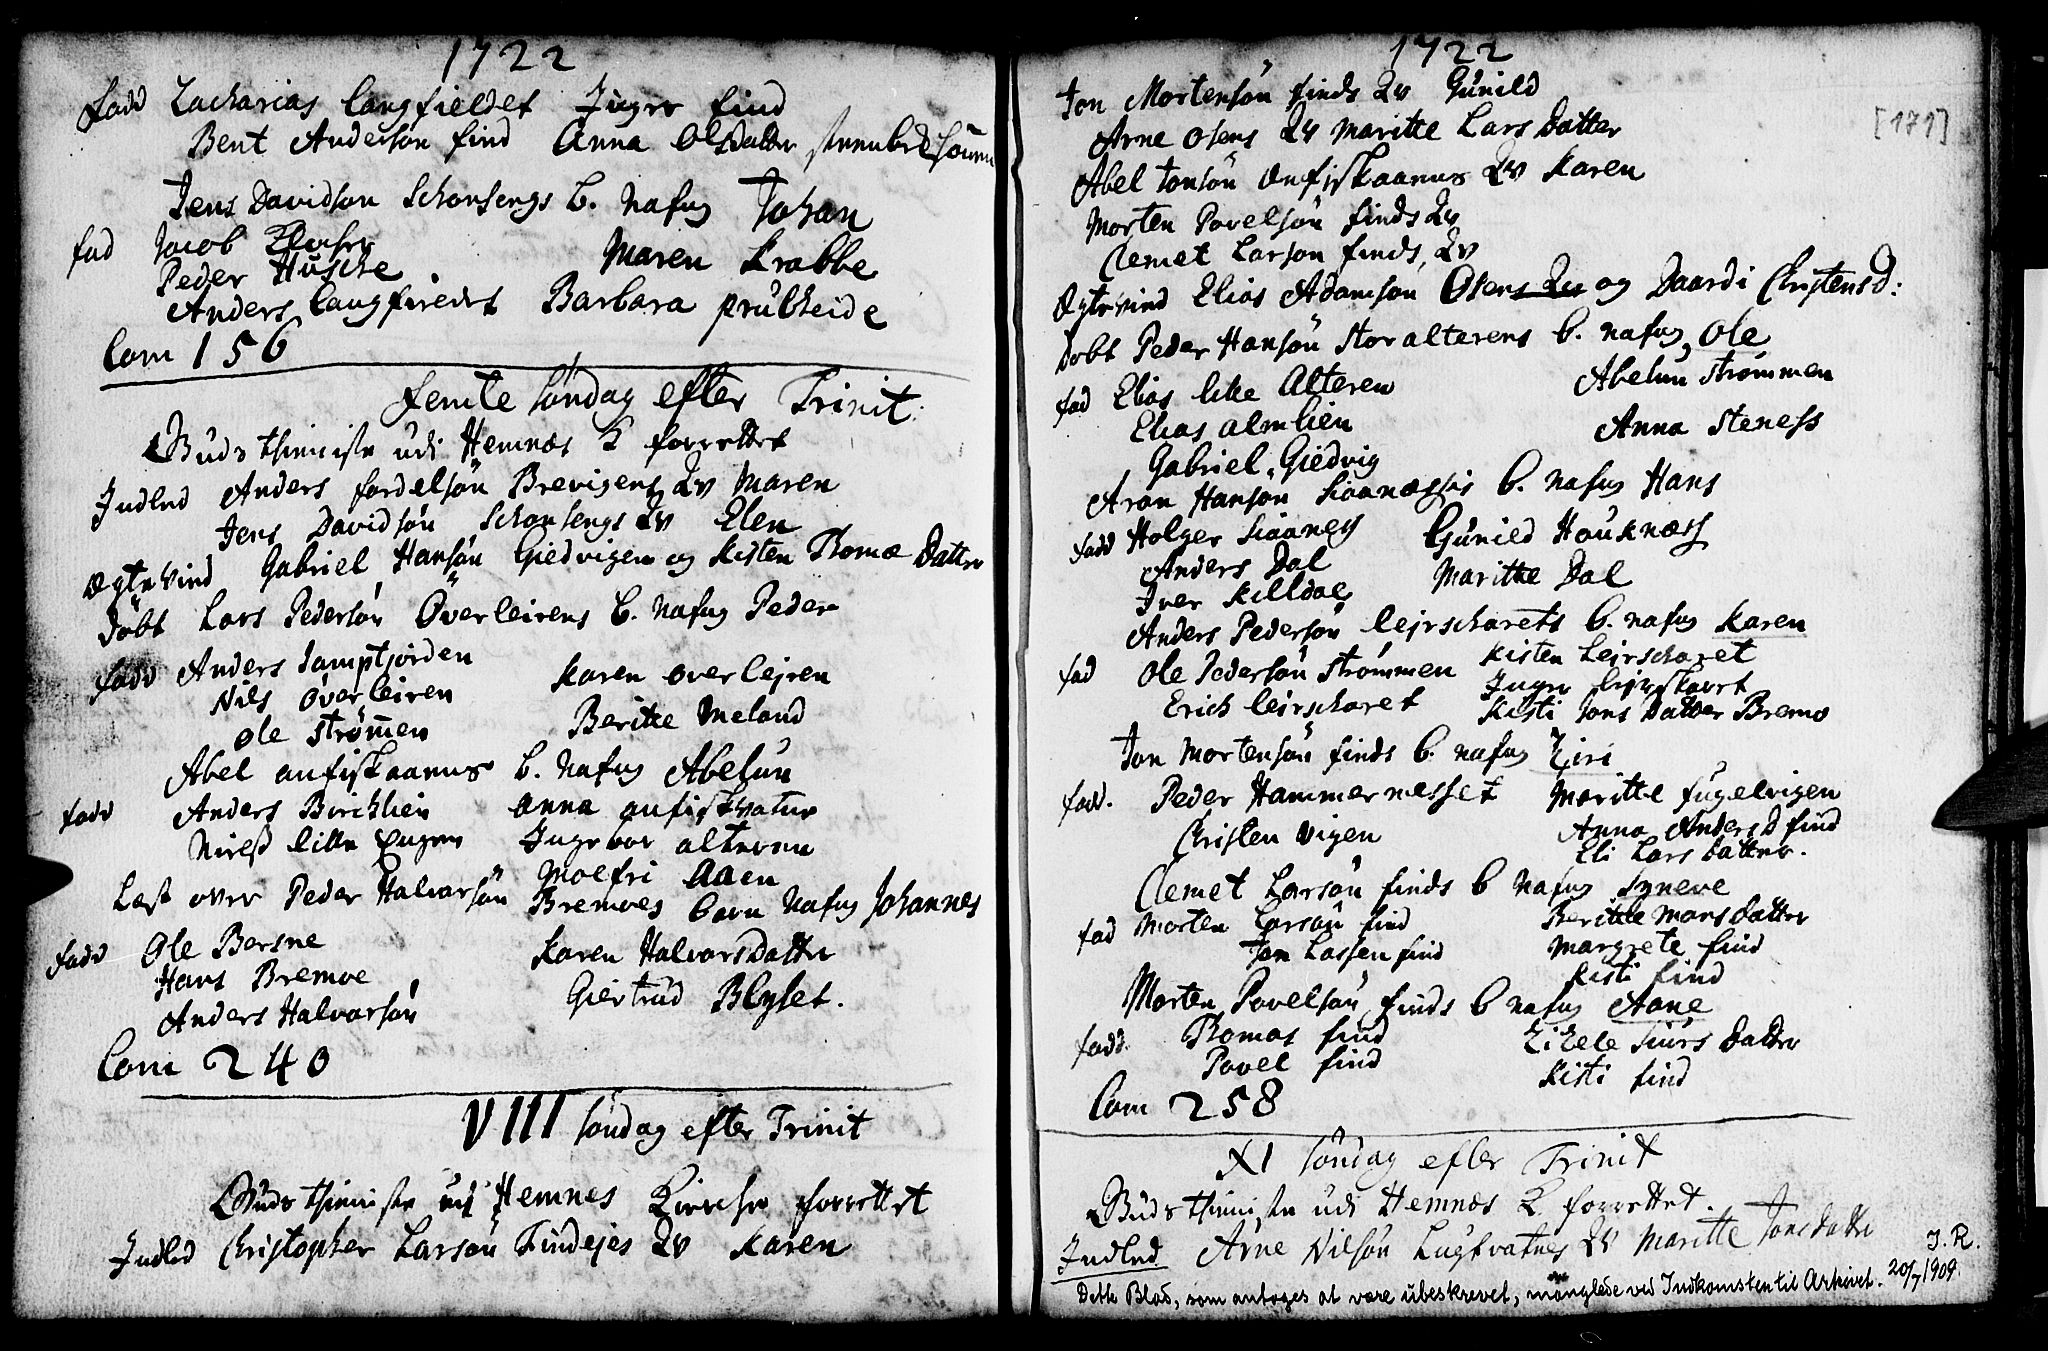 1722
fadd Zacharias langfieldet Inger find
Bent Andersøn find Anna Olsdatter
Jens Davidson Schonsengs b. nafng Johan
fad Jacob
Maren Krabbe
Peder Husche
Anders langfieedet Barbara prubheide
Com 156
femte søndag efter Trinit:
Guds thieniste udi Hemnæs K forrettet
Indled Anders fordelsøn Brevigens Qv Maren
Jens Davidsøn Schonsengs Qv Elen
Ægtevied Gabriel Hansøn Giedvigen og Kisten Thomæ Datter
Døbt Lars Pedersøn Överleirens b. nafng Peder
fadd Anders Jamptjorden Karen overlejren
Nils överleiren
Ole Strømen Beritte Meland
Abel anfiskaanes b. nafng Abelun
fadd Anders Birchlien Anna anfiskvatne
Nirels lille Ingebor alteren
Molfri Aaen
Læst over Peder Halvorsøn Bremoes barn nafng Johannes
fadd Ole Bersne Karen Halvorsdatter
Hans Bremoe
Anders Halvorsøn Giertrud Blyset.
Com 240
VIII søndag efter Trinit
Guds thieniste udi Hemnes Kirche forrettet
Indled Christopher Larsøn Findejes Qv Karen
1722
[171]
Jon Mortensøn finds Qv Gunild
Arne Osens Qv Maritte Lars Datter
Abel Jonsøn Anfiskaanes Qv Karen
Morten Povelsøn finds Qv
Clemet Larson finds, Qv
Ægtevied Elias Adamson Osens Qv og Daardi Christensd:
Døbt Peder Hansøn Storalterens b. nafng, Ole
fad Elias litle Alteren Abelun Strømmen
Elias almlien Anna Steness
Gabriel Giedvig
Aron Hanson Siaanæssis b. nafng Hans
fadd Holger Siaanes Gunied Houknæss
Anders Dal Maritte Dal
Iver Killdal
Anders Pedersøn lejrscharets b. nafng Karen
fad Ole Pedersøn Strømmen Kisten Leirscharet
Erich leirscharet Inger leirskaret
Kisti Jons Datter Bremo
Jon Mortensøn finds b. nafng Ziri
fadd. Peder Hammernesset Maritte fugelvigen
Christen Vigen Anna Anders D find
Eli Lars Datter.
Clemet Larsøn finds b nafng Syneve
fad Morten Larsøn find Beritte Monsdatter
Jon Lassen find Margrete find
Kisti find
Morten Povelsøn finds b nafng Aane
fadd. Thomas find Zizele Siurs Datter
Povel find Kisti find
Com 258
XI søndag efter Trinit
Guds thieniste udi Hemnæs K forrettet.
Indled Arne Nilsøn Lugtvatnes Qv Maritte Jonsdatter
Dette Blad, som antages at være ubeskrevet, manglede ved Indkomsten til Arkivet. 20/7 1909. J. R.